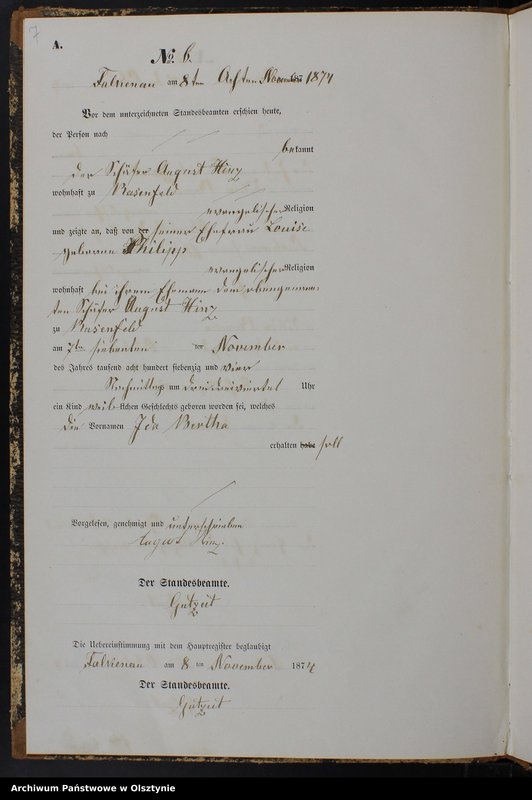 7
A.
No. 6.
Falrienau am 8ten Achten November 1874
Vor dem unterzeichneten Standesbeamten erschien heute,
der Person nach
bekannt
der Schäfer August Hinz
wohnhaft zu Rasenfeld
evangelischer Religion
und zeigte an, daß von der seiner Ehefrau Louise
geborene Philipp
evangelischer Religion
wohnhaft bei ihrem Ehemann dem obengenann-
ten Schäfer August Hinz
zu Rasenfeld
am 7ten siebenten ten November
des Jahres tausend acht hundert siebenzig und vier
Nachmittags um dreidreiviertel Uhr
ein Kind weiblichen Geschlechts geboren worden sei, welches
die Vornamen Ida Bertha
erhalten habe soll
Vorgelesen, genehmigt und unterschrieben
August Hinz.
Der Standesbeamte.
Gutzeit
Die Uebereinstimmung mit dem Hauptregister beglaubigt
Falrienau am 8 ten November 1874
Der Standesbeamte.
Gutzeit
Archiwum Państwowe w Olsztynie